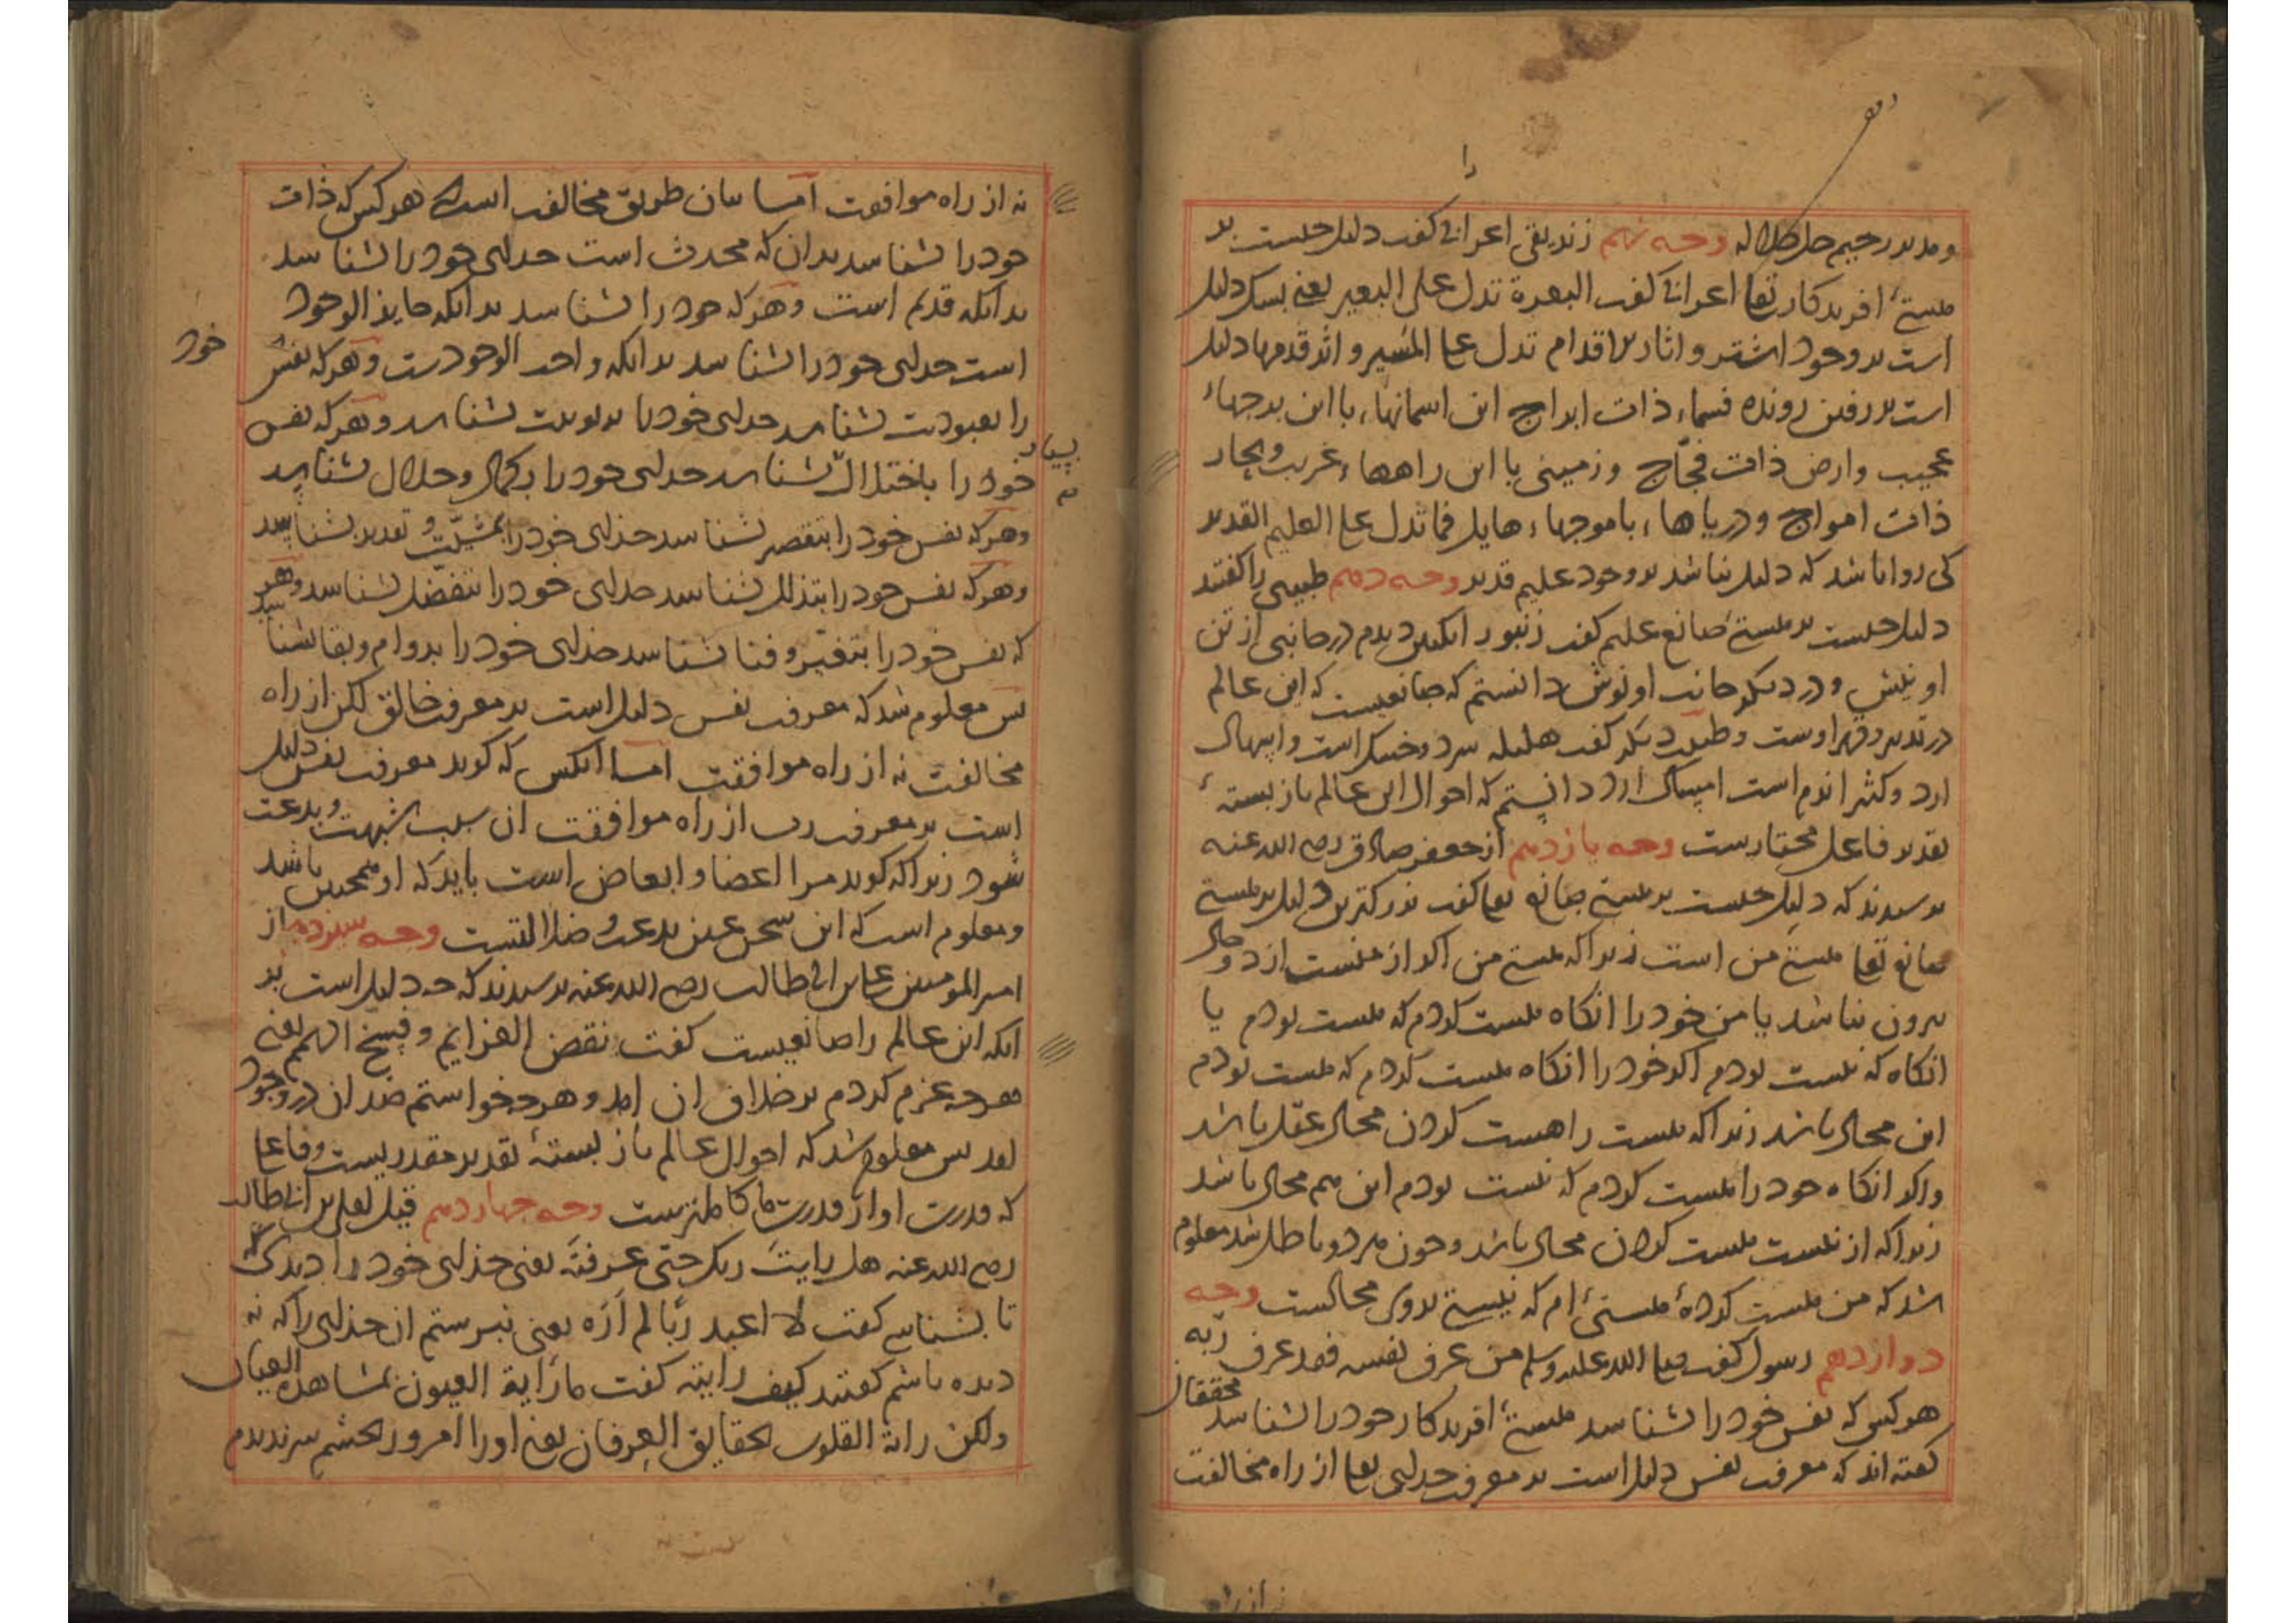 را
ومدبر رحیم جل جلاله وجه نهم زندیقی اعرابی کفت دلیل جیست بر
هستیٔ افریدکار تعا اعرابی کفت البعرة تدل علی البعیر یعنی بسک دلیل
است بر وجود اشتر و اثار الاقدام تدل علی المسیر و اثر قدمها دلیل
است بر رفتن رونده فسماء ذات ابراج این اسمانها با این برجهاء
عجیب وارض ذات فجاج و زمینی با این راهها غریب وبحار
ذات امواج ودریاها با موجها هایل فما تدل علی العلیم القدیر
کی روا باشد که دلیل نباشد بر وجود علیم قدیر وجه دهم طبیبی را کفتند
دلیل جیست بر هستی صانع علیم کفت زنبور انکبین دیدم در جانبی از تن
او نیش ودر دیکر جانب او نوش دانستم که صانعیست که این عالم
در تدبیر وقهر اوست وطبیب دیکر کفت هلیله سرد وخشک است واسهال
ارد وکثیرا نرم است امساک ارد دانستم که احوال این عالم باز بستهٔ
تقدیر فاعل مختارست وجه یازدهم از جعفر صادق رضی الله عنه
پرسیدند که دلیل جیست بر هستی صانع تعا کفت بزرکترین دلیل بر هستی
صانع تعا هستی من است زیراکه هستی من اکر از منست از دو حال
بیرون نباشد یا من خود را انکاه هست کردم که هست بودم یا
انکاه که نیست بودم اکر خود را انکاه هست کردم که هست بودم
این محال باشد زیراکه هست را هست کردن محال عقل باشد
واکر انکاه خود را هست کردم که نیست بودم این هم محال باشد
زیراکه از نیست هست کردن محال باشد وجون هر دو باطل شد معلوم
شد که من هست کردهٔ هستیٔ ام که نیستی بروی محالست وجه
دوازدهم رسول کفت صلی الله علیه وسلم من عرف نفسه فقد عرف ربه
هرکس که نفس خود را بشناسد هستیٔ افریدکار خود را بشناسد محققان
کفته اند که معرفت نفس دلیل است بر معرفت خدای تعا از راه مخالفت
نه از راه موافقت اما بیان طریق مخالفت است که هرکس که ذات
خود را بشناسد بدان که محدث است خدای خود را بشناسد
بدانکه قدیم است وهرکه خود را بشناسد بدانکه جایز الوجود
است خدای خود را بشناسد بدانکه واجب الوجودست وهرکه نفس
خود
را بعبودیت بشناسد خدای خود را بربوبیت بشناسد وهرکه نفس
خود را باختلال بشناسد خدای خود را بکمال وجلال بشناسد
وهرکه نفس خود را بتقصیر بشناسد خدای خود را بمشیّت و تقدیر بشناسد
وهرکه نفس خود را بتذلل بشناسد خدای خود را بتفضل بشناسد وهر
که نفس خود را بتغیر وفنا بشناسد خدای خود را بدوام وبقا بشناسد
پس معلوم شد که معرفت نفس دلیل است بر معرفت خالق لکن از راه
مخالفت نه از راه موافقت اما انکس که کوید معرفت نفس دلیل
است بر معرفت رب از راه موافقت ان سبب شبهت وبدعت
شود زیراکه کوید مرا اعضا وابعاض است باید که او همجنین باشد
ومعلوم است که این سخن عین بدعت و ضلالتست وجه سیزدهم از
امیر المومنین علی بن ابی طالب رضی الله عنه پرسیدند که جه دلیل است بر
انکه این عالم را صانعیست کفت نقض العزایم وفسخ الهمم یعنی
هرجه عزم کردم بر خلاف ان امد وهرجه خواستم ضد ان در وجود
امد پس معلوم شد که احوال عالم باز بستهٔ تقدیر مقدریست وفاعلی
که قدرت او از قدرت ما کاملترست وجه جهاردهم قیل لعلی بن ابی طالب
رضی الله عنه هل رایت ربک حتی عرفته یعنی خدای خود را دیدی
تا بشناسی کفت لا اعبد ربا لم اره یعنی نپرستم ان خدای را که نه
دیده باشم کفتند کیف رایته کفت ما رایة العیون بمشاهدة العیان
ولکن راته القلوب بحقایق العرفان یعنی او را امروز بجشم سر ندیدم